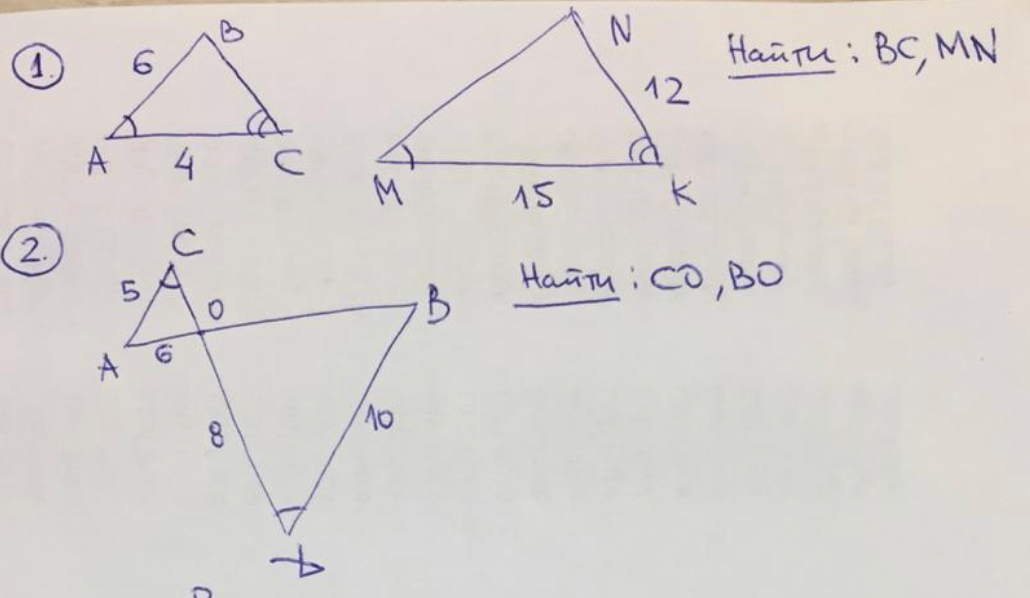 1.
B
N
Найти: BC, MN
6
12
A
4
C
M
15
K
2.
C
5
O
B
Найти: CO, BO
A
6
8
10
D